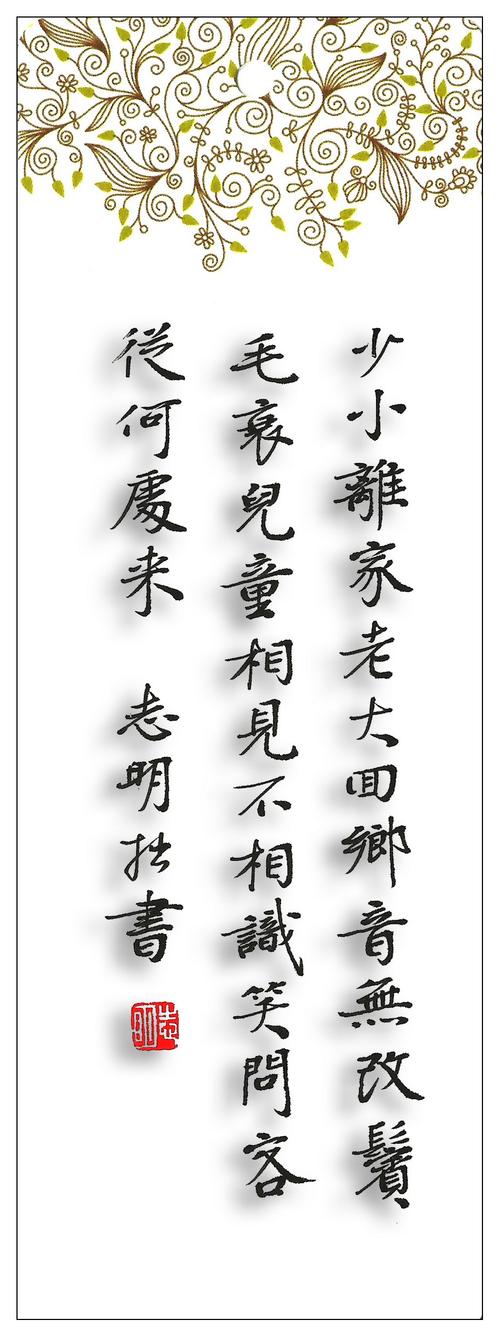 少小離家老大回鄉音無改鬢
毛衰兒童相見不相識笑問客
從何處来 志明拙書
志明